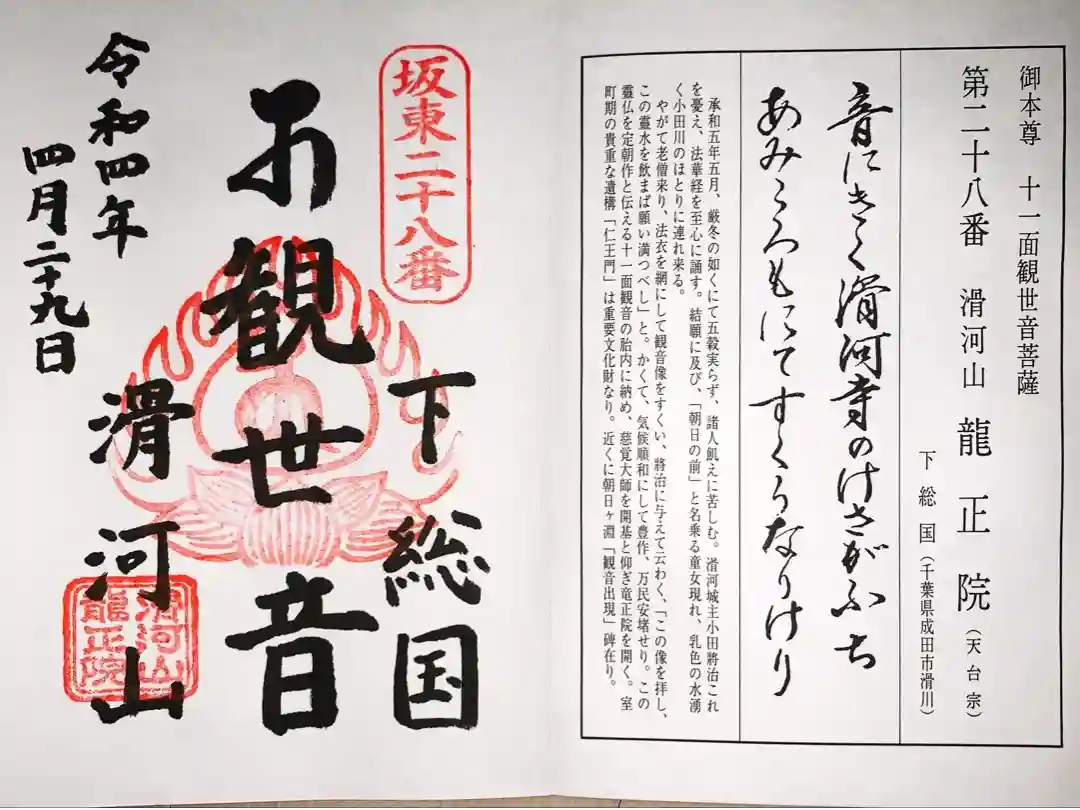 御本尊　十一面観世音菩薩
第二十八番　滑河山　龍正院（天台宗）
下総国（千葉県成田市滑川）
音にきく滑河寺のけさがふち
あみころもにてすくうなりけり
承和五年五月、厳冬の如くにて五穀実らず、諸人飢えに苦しむ。滑河城主小田將治これ
を憂え、法華経を至心に誦す。結願に及び、「朝日の前」と名乗る童女現れ、乳色の水湧
く小田川のほとりに連れ来る。
やがて老僧来り、法衣を網にして観音像をすくい、將治に与えて云わく、「この像を拝し、
この霊水を飲まば願い満つべし」と。かくて、気候順和にして豊作、万民安堵せり。この
靈仏を定朝作と伝える十一面観音の胎内に納め、慈覚大師を開基と仰ぎ竜正院を開く。室
町期の貴重な遺構「仁王門」は重要文化財なり。近くに朝日ヶ淵「観音出現」碑在り。
坂東二十八番
下総国
観世音
滑河山
滑河山
龍正院
令和四年
四月二十九日